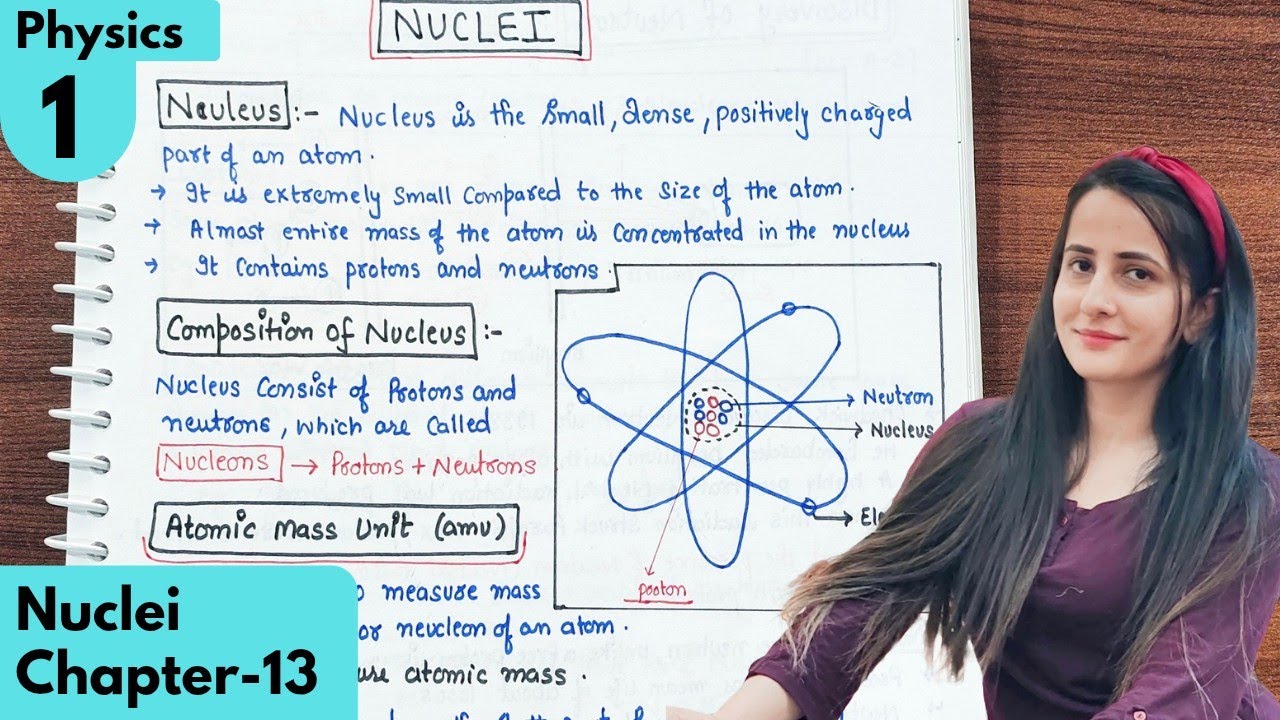 Physics
1
NUCLEI
Nauleus :- Nucleus is the small, dense, positively charged
part of an atom.
→ It is extremely small compared to the size of the atom.
→ Almast entire mass of the atom is concentrated in the nucleus
→ It contains protons and neutrons.
Composition of Nucleus :-
Nucleus consist of Protons and
neutrons, which are called
Nucleons → Protons + Neutrons
Neutron
Nucleus
proton
Atomic Mass Unit (amu)
measure mass
or neucleon of an atom.
atomic mass.
Nuclei
Chapter-13